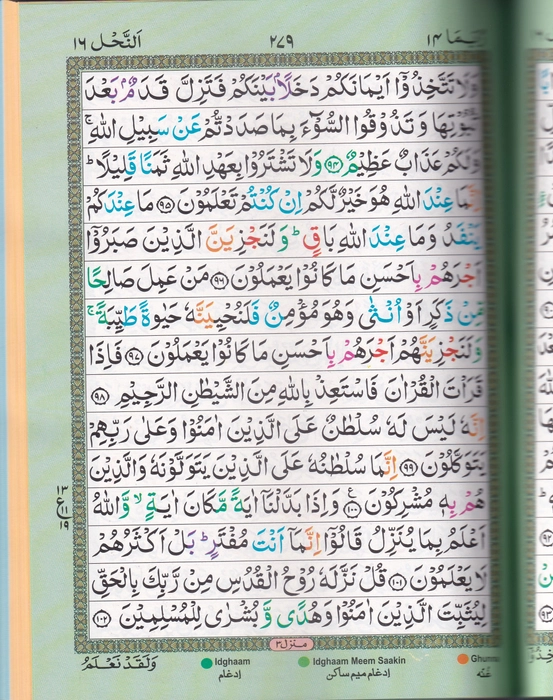 اَلنَّحْل ١٦ ٢٧٩ رُبَمَا ١٤
وَلَا تَتَّخِذُوْٓا اَيْمَانَكُمْ دَخَلًاۢ بَيْنَكُمْ فَتَزِلَّ قَدَمٌۢ بَعْدَ
ثُبُوْتِهَا وَ تَذُوْقُوا السُّوْٓءَ بِمَا صَدَدْتُّمْ عَنْ سَبِيْلِ اللّٰهِ ۚ
وَلَكُمْ عَذَابٌ عَظِيْمٌ ﴿۹۴﴾ وَلَا تَشْتَرُوْا بِعَهْدِ اللّٰهِ ثَمَنًا قَلِيْلًا ؕ
اِنَّمَا عِنْدَ اللّٰهِ هُوَ خَيْرٌ لَّكُمْ اِنْ كُنْتُمْ تَعْلَمُوْنَ ﴿۹۵﴾ مَا عِنْدَكُمْ
يَنْفَدُ وَمَا عِنْدَ اللّٰهِ بَاقٍ ؕ وَلَنَجْزِيَنَّ الَّذِيْنَ صَبَرُوْٓا
اَجْرَهُمْ بِاَحْسَنِ مَا كَانُوْا يَعْمَلُوْنَ ﴿۹۶﴾ مَنْ عَمِلَ صَالِحًا
مِّنْ ذَكَرٍ اَوْ اُنْثٰى وَهُوَ مُؤْمِنٌ فَلَنُحْيِيَنَّهٗ حَيٰوةً طَيِّبَةً ۚ
وَلَنَجْزِيَنَّهُمْ اَجْرَهُمْ بِاَحْسَنِ مَا كَانُوْا يَعْمَلُوْنَ ﴿۹۷﴾ فَاِذَا
قَرَاْتَ الْقُرْاٰنَ فَاسْتَعِذْ بِاللّٰهِ مِنَ الشَّيْطٰنِ الرَّجِيْمِ ﴿۹۸﴾
اِنَّهٗ لَيْسَ لَهٗ سُلْطٰنٌ عَلَى الَّذِيْنَ اٰمَنُوْا وَعَلٰى رَبِّهِمْ
يَتَوَكَّلُوْنَ ﴿۹۹﴾ اِنَّمَا سُلْطٰنُهٗ عَلَى الَّذِيْنَ يَتَوَلَّوْنَهٗ وَالَّذِيْنَ
هُمْ بِهٖ مُشْرِكُوْنَ ﴿۱۰۰﴾ وَاِذَا بَدَّلْنَآ اٰيَةً مَّكَانَ اٰيَةٍ ۙ وَّاللّٰهُ
اَعْلَمُ بِمَا يُنَزِّلُ قَالُوْٓا اِنَّمَآ اَنْتَ مُفْتَرٍ ؕ بَلْ اَكْثَرُهُمْ
لَا يَعْلَمُوْنَ ﴿۱۰۱﴾ قُلْ نَزَّلَهٗ رُوْحُ الْقُدُسِ مِنْ رَّبِّكَ بِالْحَقِّ
لِيُثَبِّتَ الَّذِيْنَ اٰمَنُوْا وَهُدًى وَّ بُشْرٰى لِلْمُسْلِمِيْنَ ﴿۱۰۲﴾
١٣
ع ١١
١٩
منزل ٣
وَلَقَدْ نَعْلَمُ
Idghaam
ادغام
Idghaam Meem Saakin
ادغام میم ساکن
غنّہ